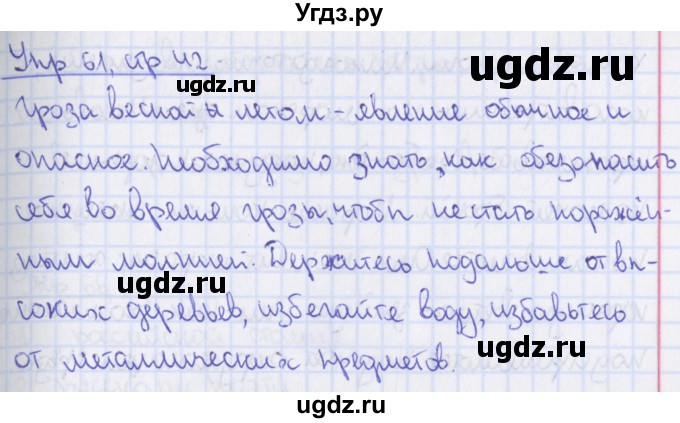 Угдз.ру
Упр 61, стр 42
Гроза весной и летом - явление обычное и
опасное. Необходимо знать, как обезопасить
себя во время грозы, чтобы не стать поражён-
ным молнией. Держитесь подальше от вы-
соких деревьев, избегайте воду, избавьтесь
от металлических предметов.
ugdz.ru
ugdz.ru
ugdz.ru
ugdz.ru
ugdz.ru
ugdz.ru
ugdz.ru